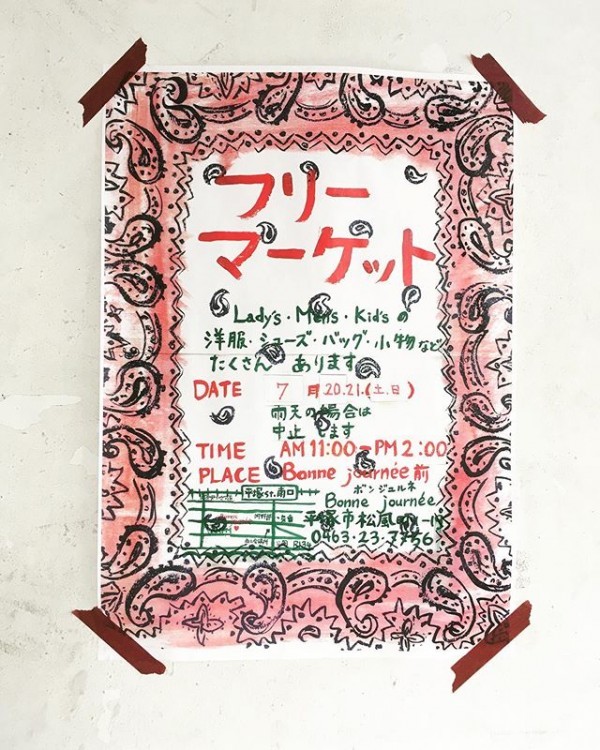 フリー
マーケット
Lady's・Mens・Kid'sの
洋服・シューズ・バッグ・小物など
たくさん あります
DATE 7月20.21.(土.日)
雨天の場合は
中止 ます
TIME AM11:00-PM2:00
PLACE Bonne journée前
ボンジュルネ
平塚st.南口
Bonne journée
平塚市松風町
0463・23・